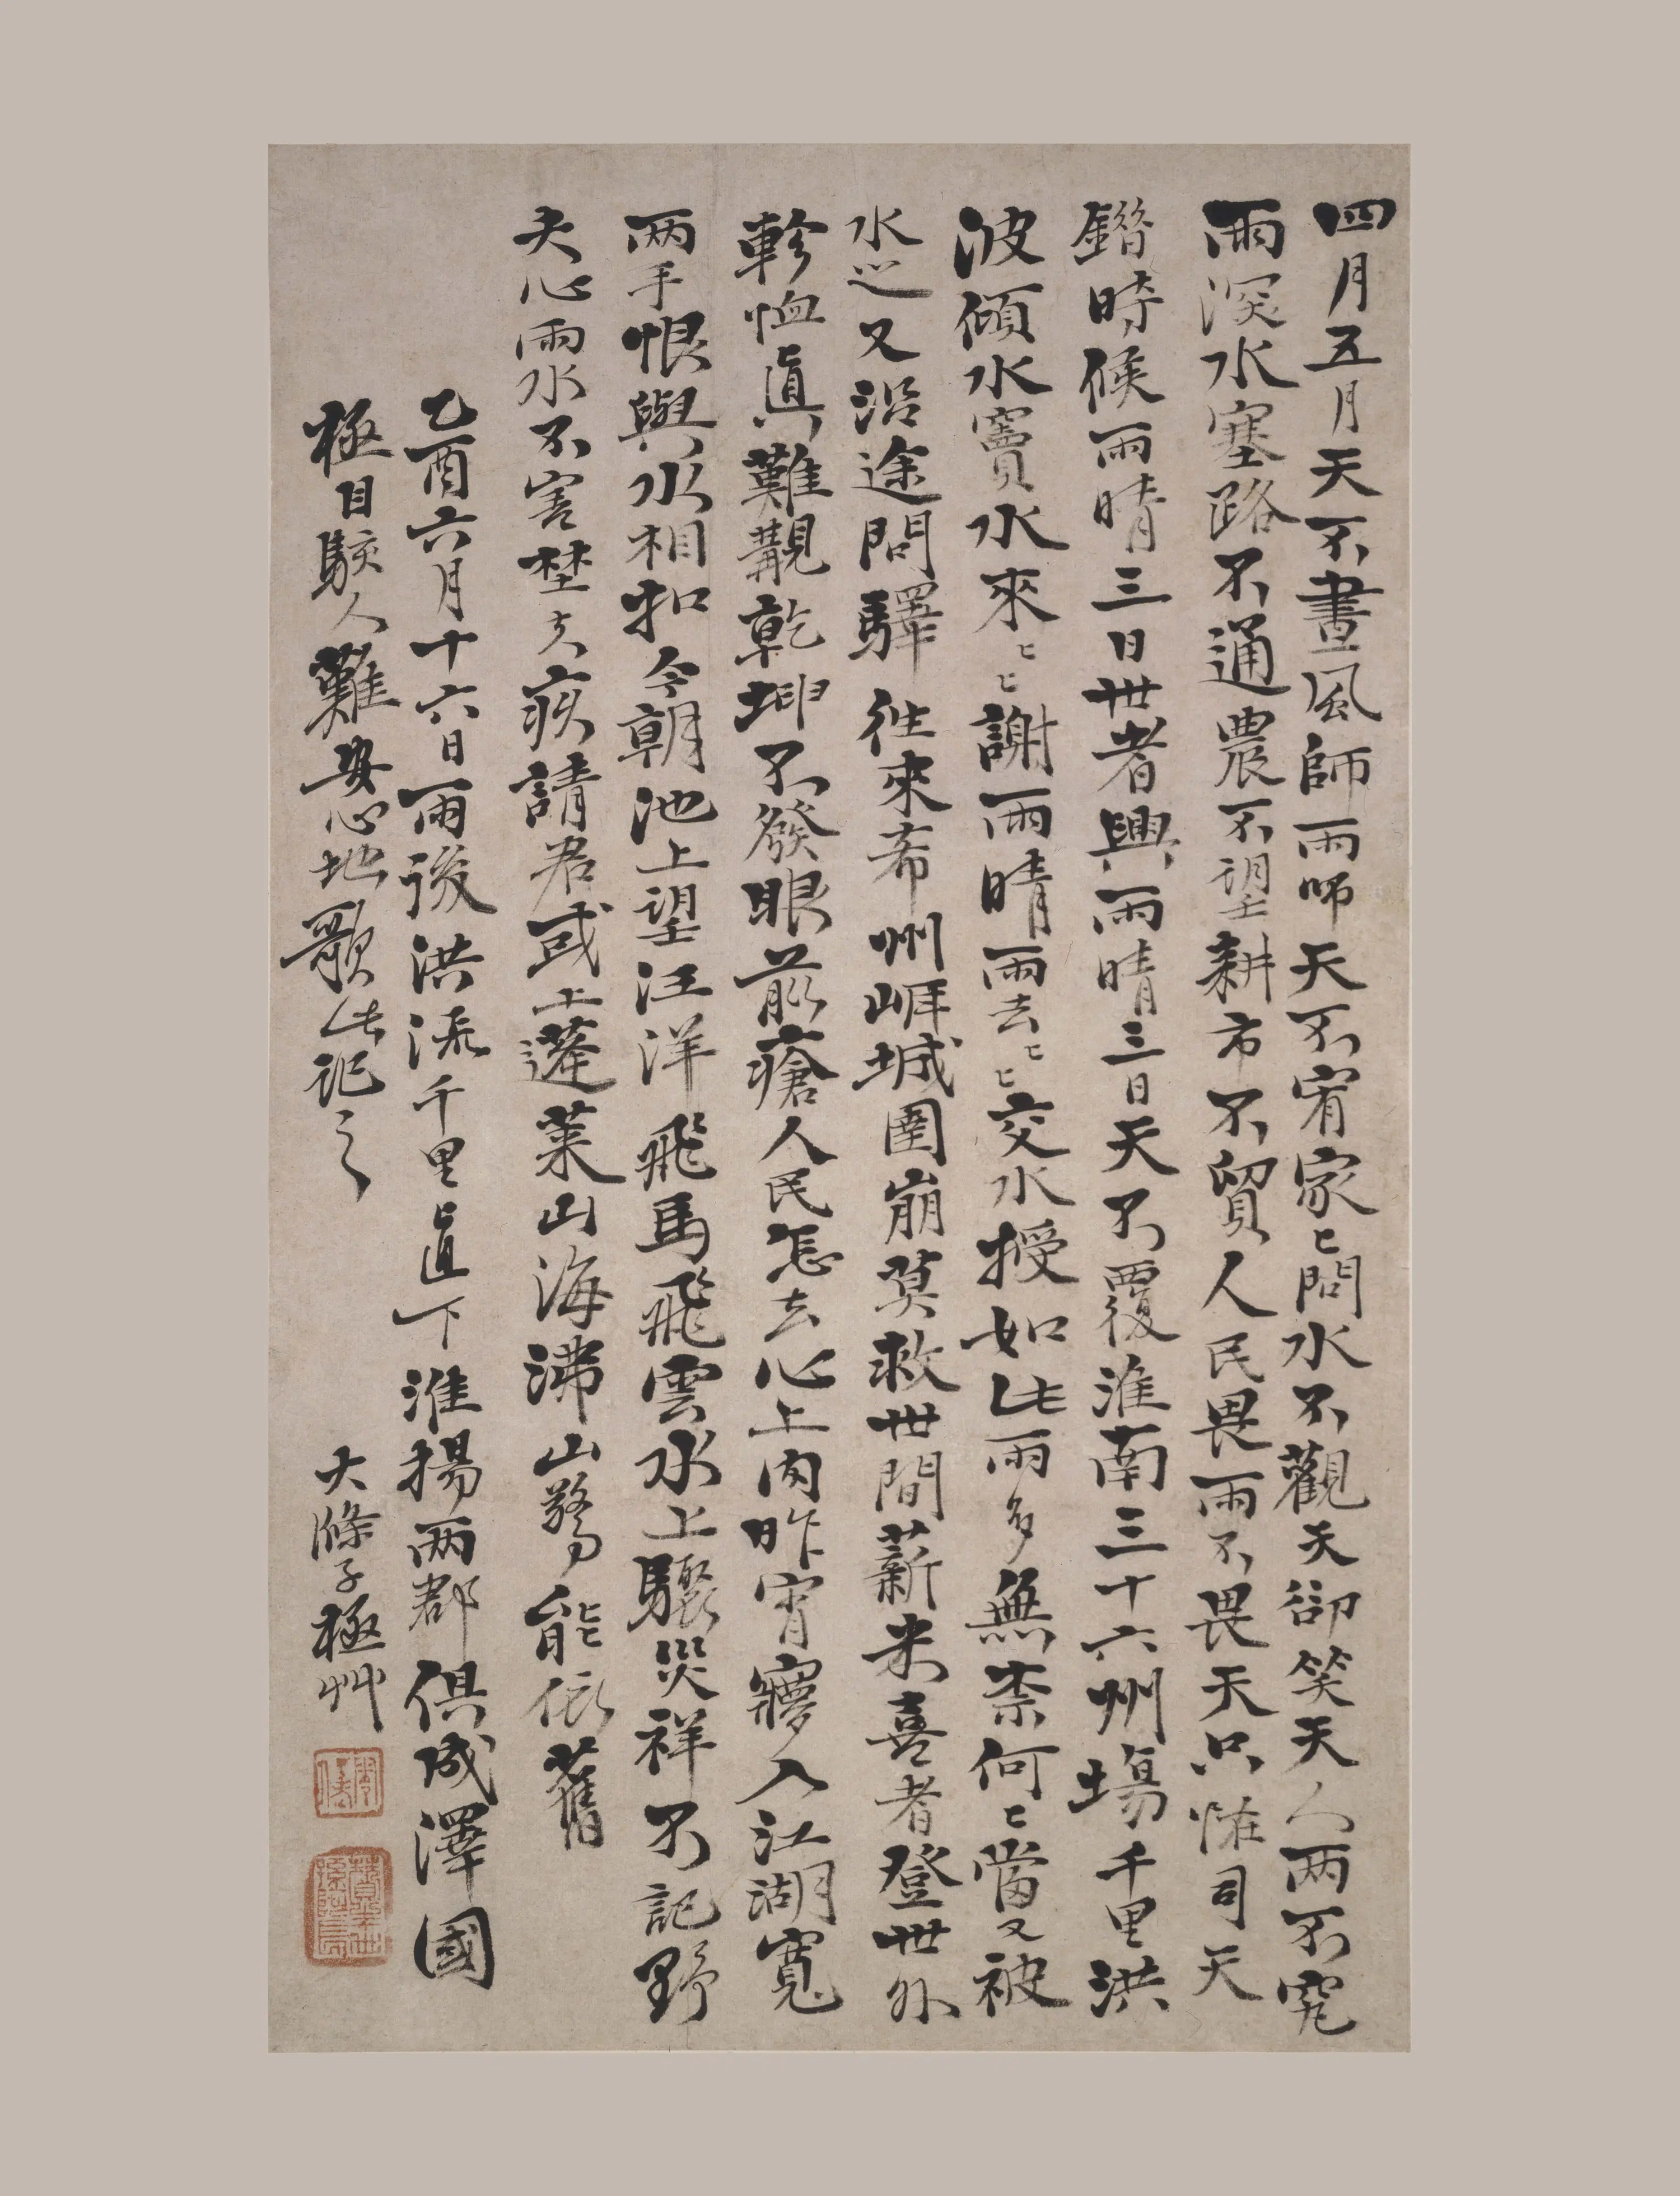 四月五月天不晝風師雨師天不宥家〻問水不觀天卻笑天人两不究
雨深水塞路不通農不望耕市不貿人民畏雨不畏天只恠司天
錯時候雨晴三日世者興雨晴三日天不覆淮南三十六州場千里洪
波傾水竇水來〻〻謝雨晴雨去〻〻交水授如此雨多無柰何〻當又被
水巡又沿途問驛往來希州崕城圍崩莫救世間薪米喜者登世外
軫恤真難覯乾坤不發眼前瘡人民怎去心上肉昨宵寱入江湖寬
两手恨與水相扣今朝池上望汪洋飛馬飛雲水上驟災祥不記野
夫心雨水不害埜夫疾請君或上蓬萊山海沸山驚能依舊
乙酉六月十六日雨後洪流千里直下淮揚两郡俱成澤國
極目駭人難安心地歌此記之
大滌子極艸